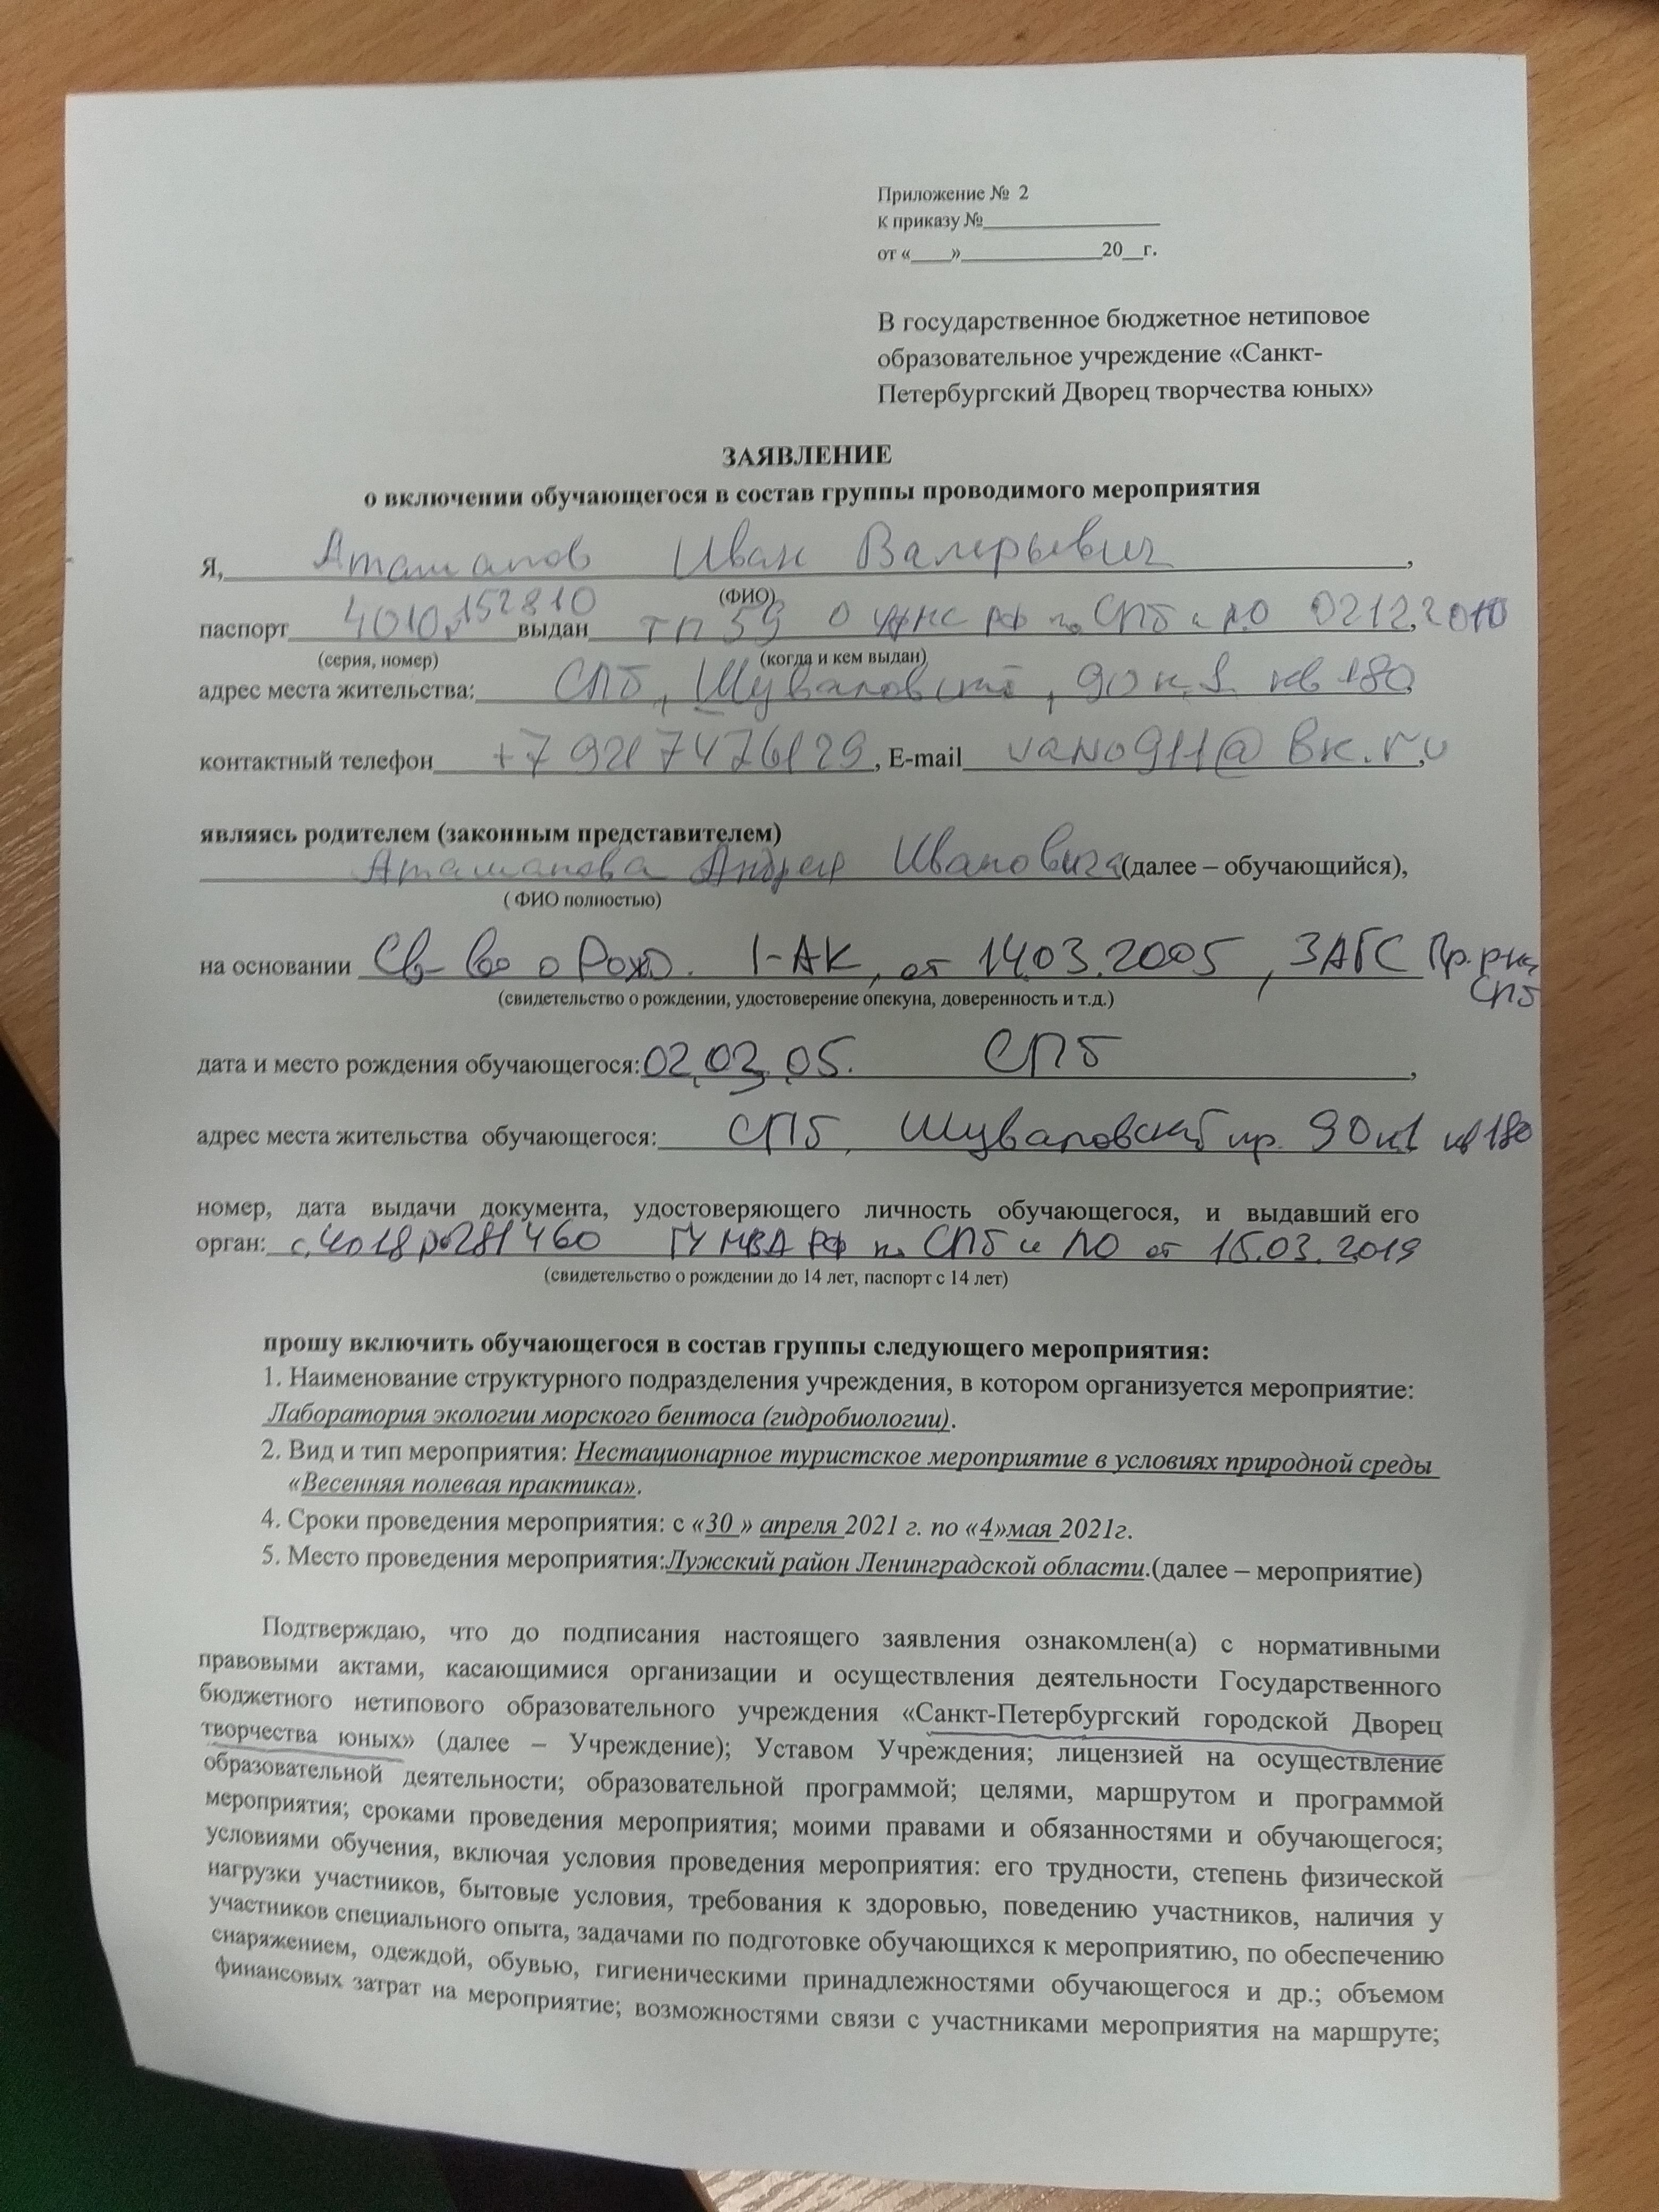 Приложение № 2
к приказу №____________________
от «____»______________20__г.
В государственное бюджетное нетиповое
образовательное учреждение «Санкт-
Петербургский Дворец творчества юных»
ЗАЯВЛЕНИЕ
о включении обучающегося в состав группы проводимого мероприятия
Я, Атаманов Иван Валерьевич,
(ФИО)
паспорт 4010 152810 выдан ТП 59 О УФМС РФ по СПб и ЛО 02.12.2010
(серия, номер) (когда и кем выдан)
адрес места жительства: СПб, Шуваловский, 90 к.1 кв 180
контактный телефон +7 921 7476129, E-mail vano911@bk.ru
являясь родителем (законным представителем)
Атаманова Андрея Ивановича (далее – обучающийся),
( ФИО полностью)
на основании Св-во о Рожд. I-АК, от 14.03.2005, ЗАГС Пр. р-на СПб
(свидетельство о рождении, удостоверение опекуна, доверенность и т.д.)
дата и место рождения обучающегося: 02.03.05. СПб,
адрес места жительства обучающегося: СПб, Шуваловский пр. 90 к1 кв 180
номер, дата выдачи документа, удостоверяющего личность обучающегося, и выдавший его
орган: с.4018 № 281460 ГУ МВД РФ по СПб и ЛО от 15.03.2019
(свидетельство о рождении до 14 лет, паспорт с 14 лет)
прошу включить обучающегося в состав группы следующего мероприятия:
1. Наименование структурного подразделения учреждения, в котором организуется мероприятие:
Лаборатория экологии морского бентоса (гидробиологии).
2. Вид и тип мероприятия: Нестационарное туристское мероприятие в условиях природной среды
«Весенняя полевая практика».
4. Сроки проведения мероприятия: с «30 » апреля 2021 г. по «4»мая 2021г.
5. Место проведения мероприятия:Лужский район Ленинградской области.(далее – мероприятие)
Подтверждаю, что до подписания настоящего заявления ознакомлен(а) с нормативными
правовыми актами, касающимися организации и осуществления деятельности Государственного
бюджетного нетипового образовательного учреждения «Санкт-Петербургский городской Дворец
творчества юных» (далее – Учреждение); Уставом Учреждения; лицензией на осуществление
образовательной деятельности; образовательной программой; целями, маршрутом и программой
мероприятия; сроками проведения мероприятия; моими правами и обязанностями и обучающегося;
условиями обучения, включая условия проведения мероприятия: его трудности, степень физической
нагрузки участников, бытовые условия, требования к здоровью, поведению участников, наличия у
участников специального опыта, задачами по подготовке обучающихся к мероприятию, по обеспечению
снаряжением, одеждой, обувью, гигиеническими принадлежностями обучающегося и др.; объемом
финансовых затрат на мероприятие; возможностями связи с участниками мероприятия на маршруте;